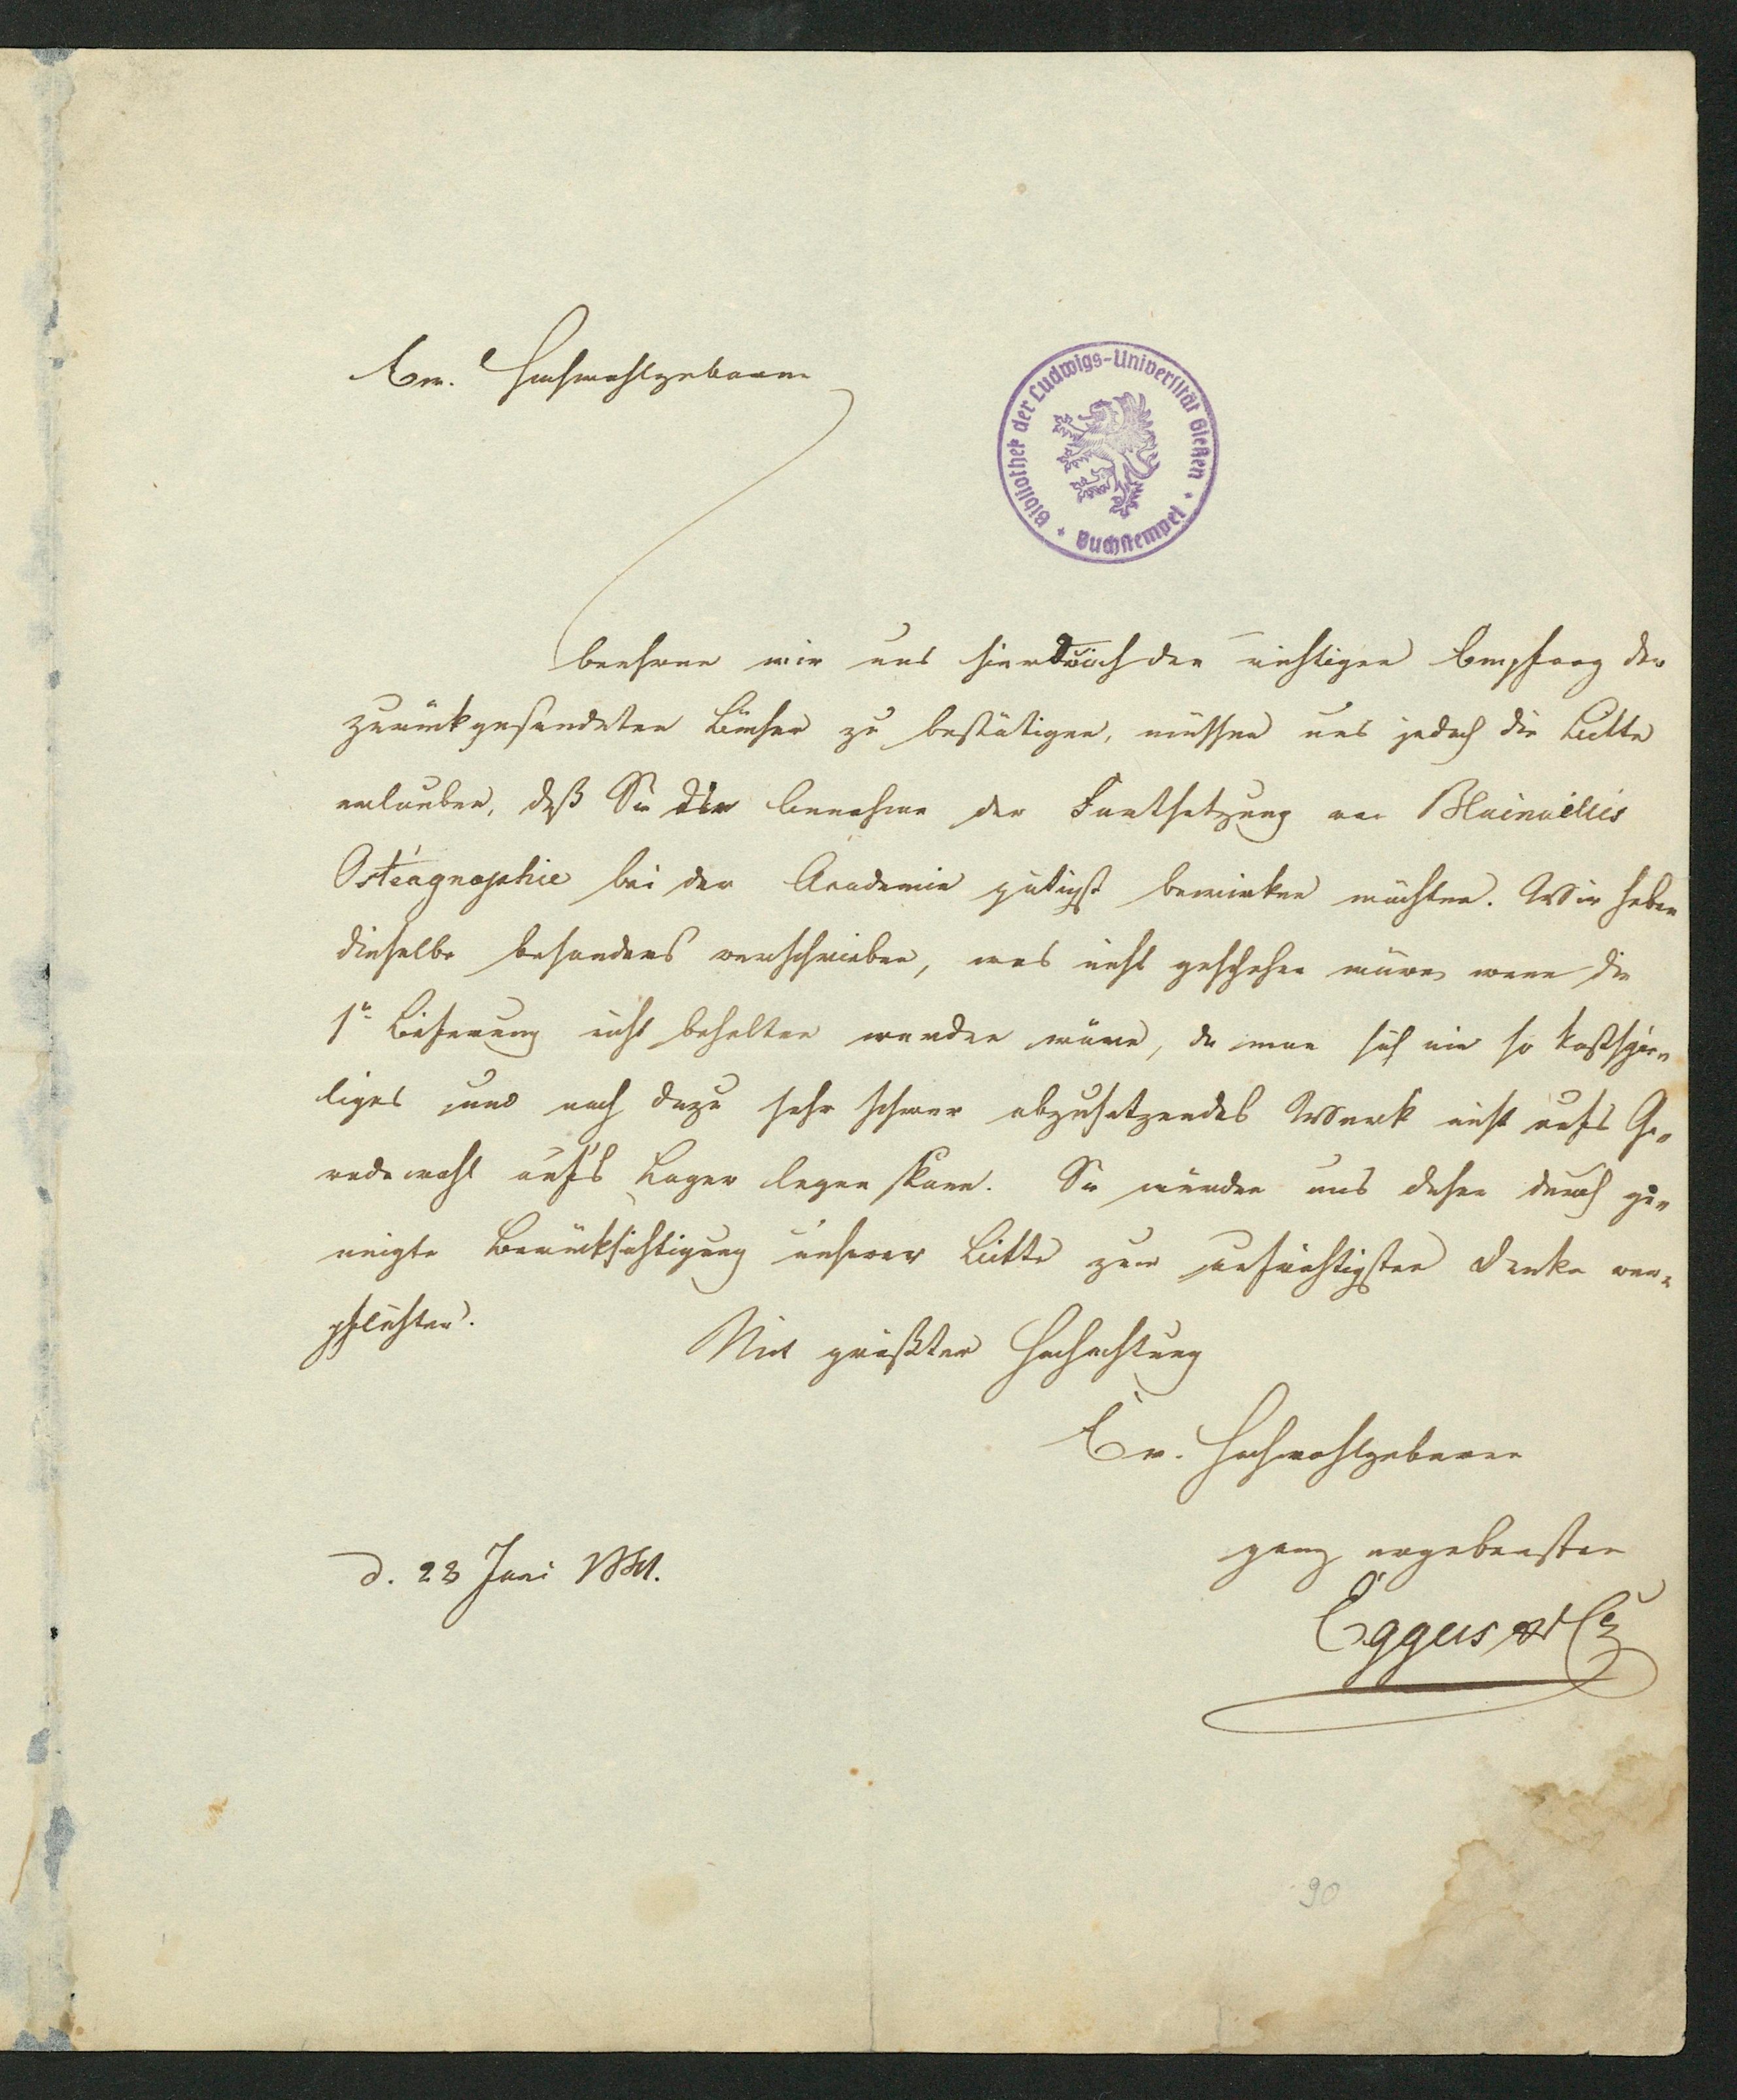 Ew. Hochwohlgeboren
Bibliothek der Ludwigs-Universität Gießen
Buchstempel
beehren wir uns hierdurch den richtigen Empfang der
zurückgesendeten Bücher zu bestätigen, müssen uns jedoch die Bitte
erlauben, daß Sie die Annahme der Fortsetzung von Blainvilles
Ostéographie bei der Academie gütigst bewirken möchten. Wir haben
dieselbe besonders verschrieben, was nicht geschehen wäre, wenn die
1e Lieferung nicht behalten worden wäre, da man sich ein so kostspie-
liges und noch dazu sehr schwer abzusetzendes Werk nicht aufs Ge-
radewohl auf's Lager legen kann. Sie würden uns daher durch ge-
neigte Berücksichtigung unserer Bitte zum aufrichtigsten Danke ver-
pflichten.
Mit größter Hochachtung
Ew. Hochwohlgeboren
ganz ergebensten
d. 23 Juni 1841.
Eggers et Co
90